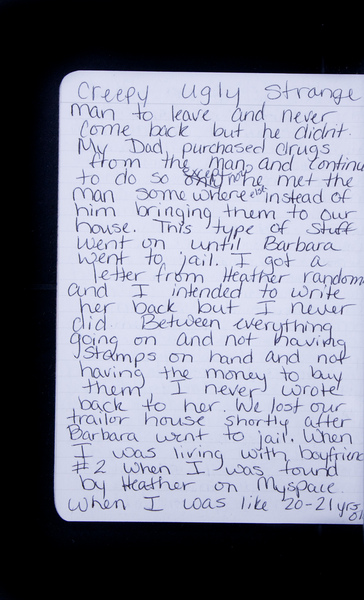 Creepy Ugly Strange
man to leave and never
come back but he didn't.
My Dad, purchased drugs
from the man, and continue
to do so except now he met the
man somewhere else instead of
him bringing them to our
house. This type of stuff
went on until Barbara
went to jail. I got a
letter from Heather random
and I intended to write
her back but I never
did. Between everything
going on and not having
stamps on hand and not
having the money to buy
them, I never wrote
back to her. We lost our
trailor house shortly after
Barbara went to jail. When
I was living with boyfrien
#2 when I was found
by Heather on Myspace
when I was like 20-21 yrs
ol